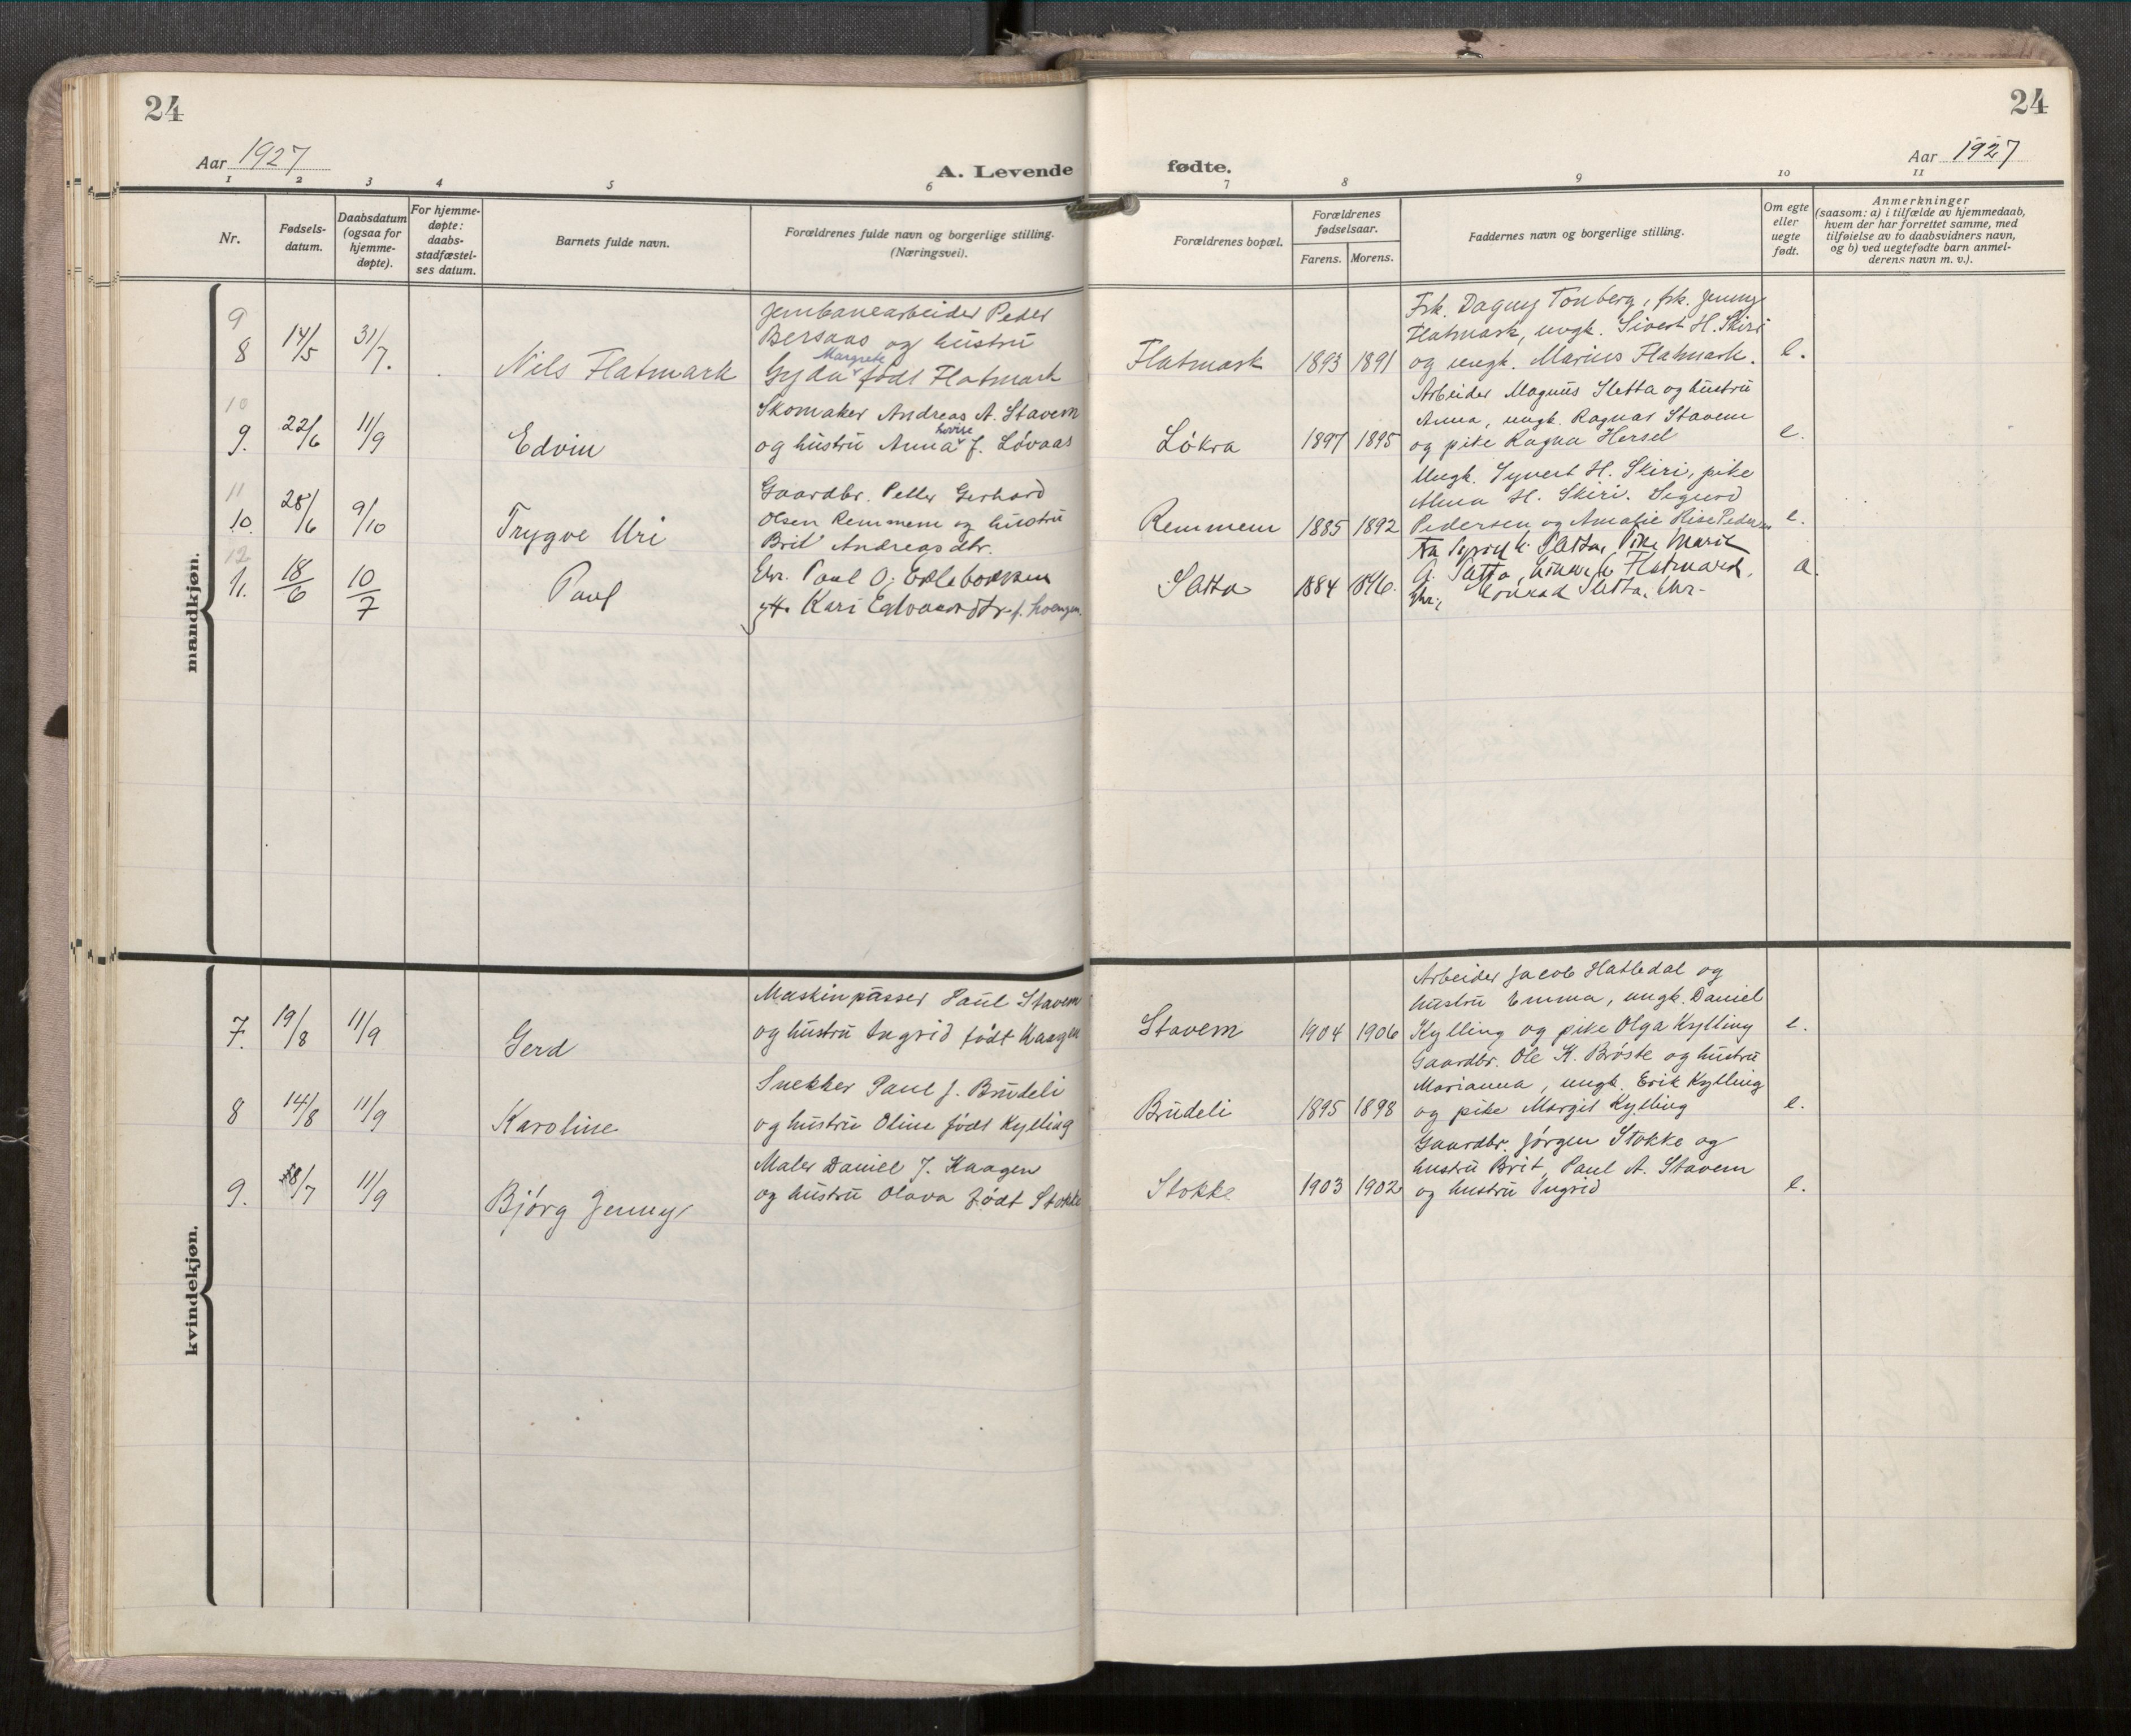 24
24
Aar 1927
A. Levende
fødte.
Aar 1927
1 2 3 4 5 6 7 8 9 10 11
Nr.
Fødsels-
datum.
Daabsdatum
(ogsaa for
hjemme-
døpte).
For hjemme-
døpte:
daabs-
stadfæstel-
ses datum.
Barnets fulde navn.
Forældrenes fulde navn og borgerlige stilling.
(Næringsvei).
Forældrenes bopæl.
Forældrenes
fødselsaar.
Farens. Morens.
Faddernes navn og borgerlige stilling.
Om egte
eller
uegte
født.
Anmerkninger
(saasom: a) i tilfælde av hjemmedaab,
hvem der har forrettet samme, med
tilføielse av to daabsvidners navn,
og b) ved uegtefødte barn anmel-
derens navn m. v.).
mandkjøn.
9
8 14/5 31/7. Nils Flatmark
Jernbanearbeider Peder
Bersaas og hustru
Margrete
Gyda født Flatmark
Flatmark 1893 1891
Frk. Dagny Tonberg, frk. Jenny
Flatmark, ungk. Sivert H. Skiri
og ungk. Marius Flatmark. e.
10
9. 22/6 11/9 Edvin
Skomaker Andreas A. Stavem
Lovise
og hustru Anna f. Løvaas
Løkra 1897 1895
Arbeider Magnus Sletta og hustru
Anna, ungk. Ragnar Stavem
og pike Ragna Hersel e.
11
10. 28/6 9/10 Trygve Uri
Gaardbr. Petter Gerhard
Olsen Remmem og hustru
Brit Andreasdtr.
Remmem 1885 1892
Ungk. Syvert H. Skiri, pike
Alma H. Skiri. Sigurd
Pedersen og Amalie Rise Pedersen e.
12
11. 18/6 10/7 Paul
Paul O.
Kari Edvardsdtr. f.
Sletta 1884
Sletta, Pike Marie
Sletta, Flatmark,
Konrad Sletta,
kvindekjøn.
7. 19/8 11/9 Gerd
Maskinpasser Paul Stavem
og hustru Ingrid født Kaagen
Stavem 1904 1906
Arbeider Jacob Hatledal og
hustru Emma, ungk. Daniel
Kylling og pike Olga Kylling e.
8 14/8 11/9 Karoline
Snekker Paul J. Brudeli
og hustru Oline født Kylling
Brudeli 1895 1898
Gaardbr. Ole K. Brøste og hustru
Marianna, ungk. Erik Kylling
og pike Margit Kylling e.
9. 11/9 Bjørg Jenny
Maler Daniel J. Kaagen
og hustru Olava født Stokke
Stokke 1903 1902
Gaardbr. Jørgen Stokke og
hustru Brit, Paul A. Stavem
og hustru Ingrid e.